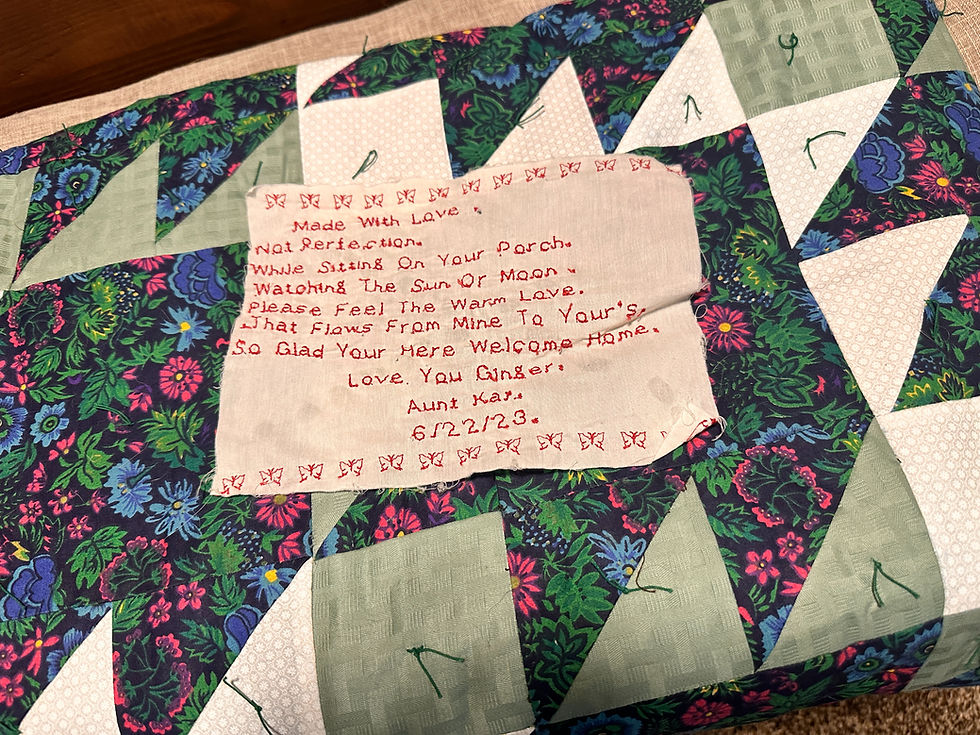 Made With Love.
Not Perfection.
While Sitting On Your Porch.
Watching The Sun Or Moon.
Please Feel The Warm Love.
That Flows From Mine To Your's.
So Glad Your Here Welcome Home.
Love You Ginger.
Aunt Kar.
6/22/23.